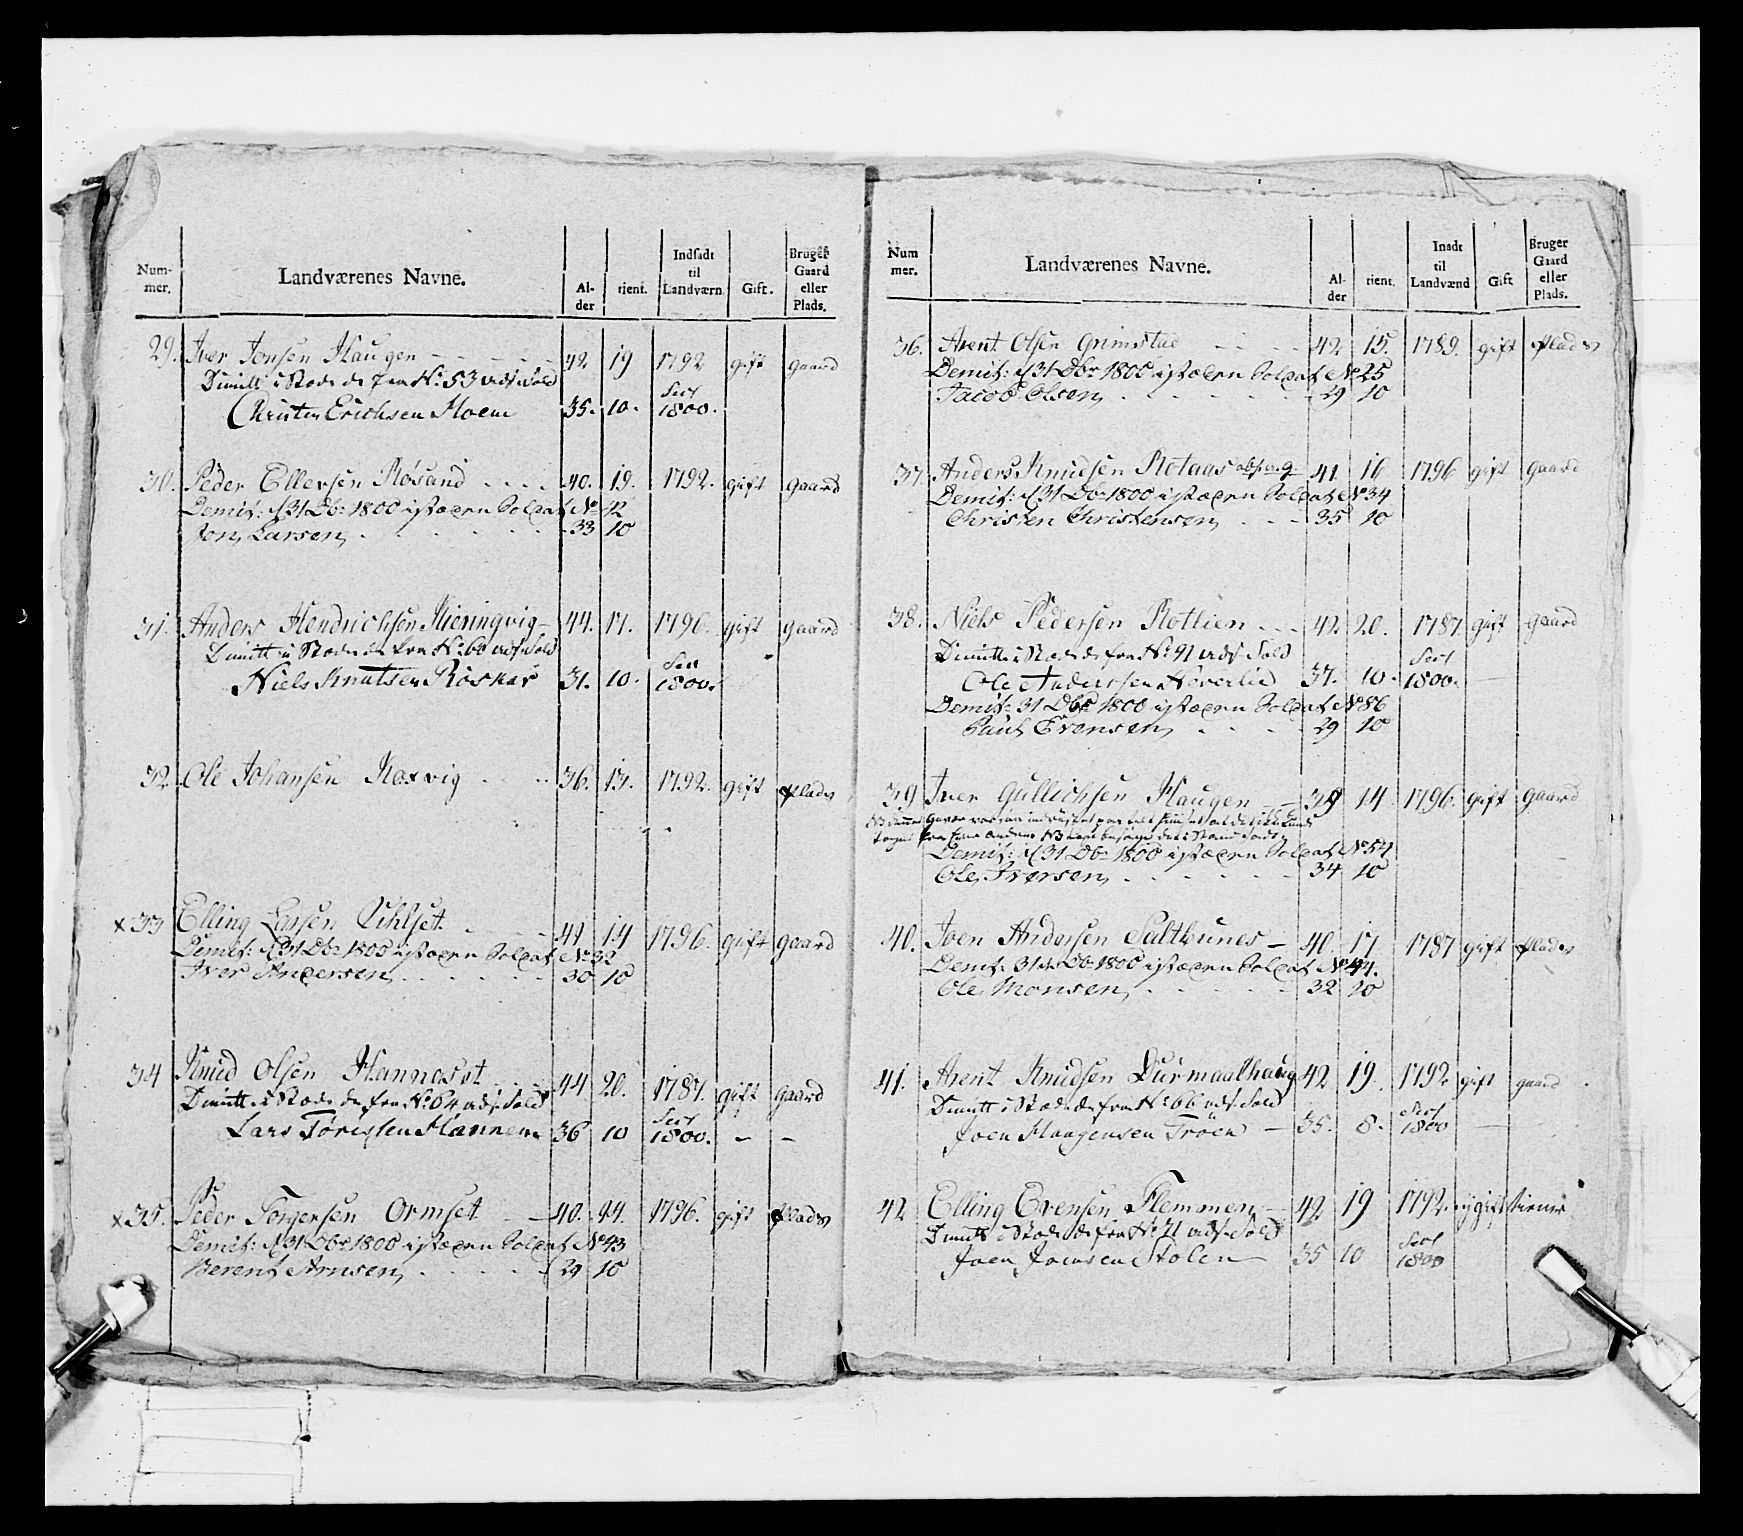 Num-
mer.
Landværenes Navne.
Al-
der
tient.
Indsadt
til
Landværn
Gift.
Bruger
Gaard
eller
Plads.
29. Iver Jonsen Haugen 42 19 1792 gift gaard
Dimitt i Stæde de fra No 53 udf. Sold
Christen Erichsen Moene 35. 10. 1800.
30. Peder Ellersen Røsand 40. 19. 1792. gift gaard
Demit: d 31 Dbr 1800 istæern Soldat No 42
Jon Larsen 33 10
31. Anders Hendrichsen Kieringvig 44. 17. 1796. gift gaard
Dimitt i Stæde de fra No 60 udf. Sold
Niels Knutsen Røskar 31. 10. 1800.
32 Ole Johansen Koxvig 36. 13. 1792. gift plads
x33 Elling Larsen 41 14 1796. gift gaard
Demit: d 31 Dbr 1800 istæern Soldat No 32
Iver Andersen 30 10
34 Knud Olsen Hannaset 44 20. 1787. gift gaard
Dimitt i Stæde de fra No 64 udf. Sold
Lars Toresen Hannem 36 10 1800. - -
x35. Peder Torgersen Ormset 40. 14. 1796. gift plads
Demit: d 31 Dbr 1800 istæern Soldat No 43
Berent Arnsen 29 10
Num
mer.
Landværenes Navne.
Al-
der
tient.
Inadt
til
Landvænd
Gift
Bruger
Gaard
eller
Plads.
36. Arent Olsen Grimstad 42 15. 1789. gift plads
Demit: d 31 Dbr 1800 istæern Soldat No 25
Jacob Olsen 29 10
37. Anders Knudsen Rotaas 41 16 1796 gift gaard
Demit: d 31 Dbr 1800 istæern Soldat No 34
Christen Christensen 35 10
38. Niels Pedersen Rotlien 42 20. 1787 gift gaard
Dimitt i Stæde de fra No 41 udf. Sold
Ole Anderssen Neverlie 37. 10. 1800.
Demit: 31 Dbr 1800 istæern Soldat No 86
Paul Evensen 29 10
39 Iver Gullichsen Haugen 38 14 1796. gift gaard
Demit: d 31 Dbr 1800 istæern Soldat No 54
Ole Iversen 34 10
40. Joen Andersen Saltbunes 40 17 1787 gift plads
Demit: 31 Dbr 1800 istæern Soldat No 44.
Ole Monsen 32 10
41. Arent Knudsen Durmaalhaug 42 19 1792 gift gaard
Dimitt i Stæde de fra No 66 udf. Sold
Joen Haagensen Trøen 35. 8. 1800
42 Elling Evensen Flemmen 42 19 1792. ugift tiener
Dimitt i Stæde de fra No 71 udf. Sold
Joen Joensen Stolen 35 10 1800